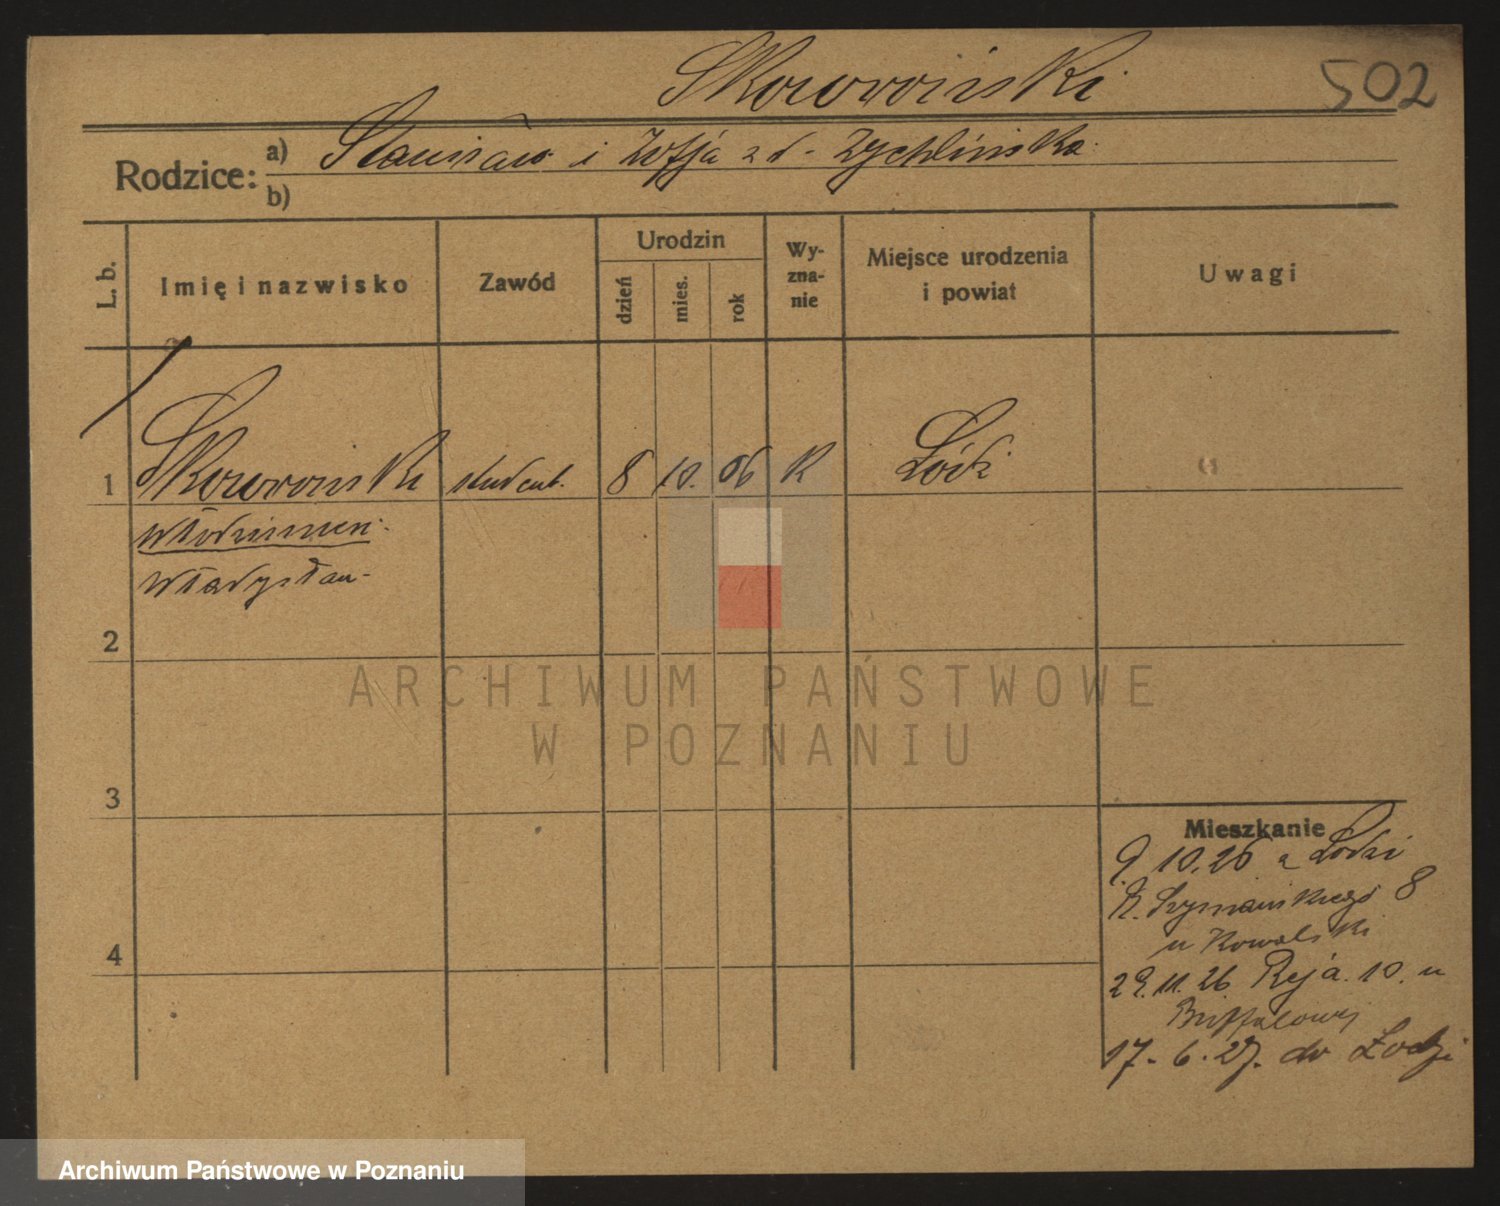 Skoworoński
502
Rodzice: a) Stanisław i Zofja z d. Zychlińska
b)
L. b.
Imię i nazwisko
Zawód
Urodzin
dzień
mies.
rok
Wy-
zna-
nie
Miejsce urodzenia
i powiat
Uwagi
1 Skoworoński student. 8 10. 06 K Łódź
Włodzimierz
Władysław
2
3
4
Mieszkanie
9.10.26 z Łodzi
K. Szymańskiego 8
u Kowalski
29.11.26 Reja 10. u
17.6.27. do Łodzi
ARCHIWUM PAŃSTWOWE
W POZNANIU
Archiwum Państwowe w Poznaniu